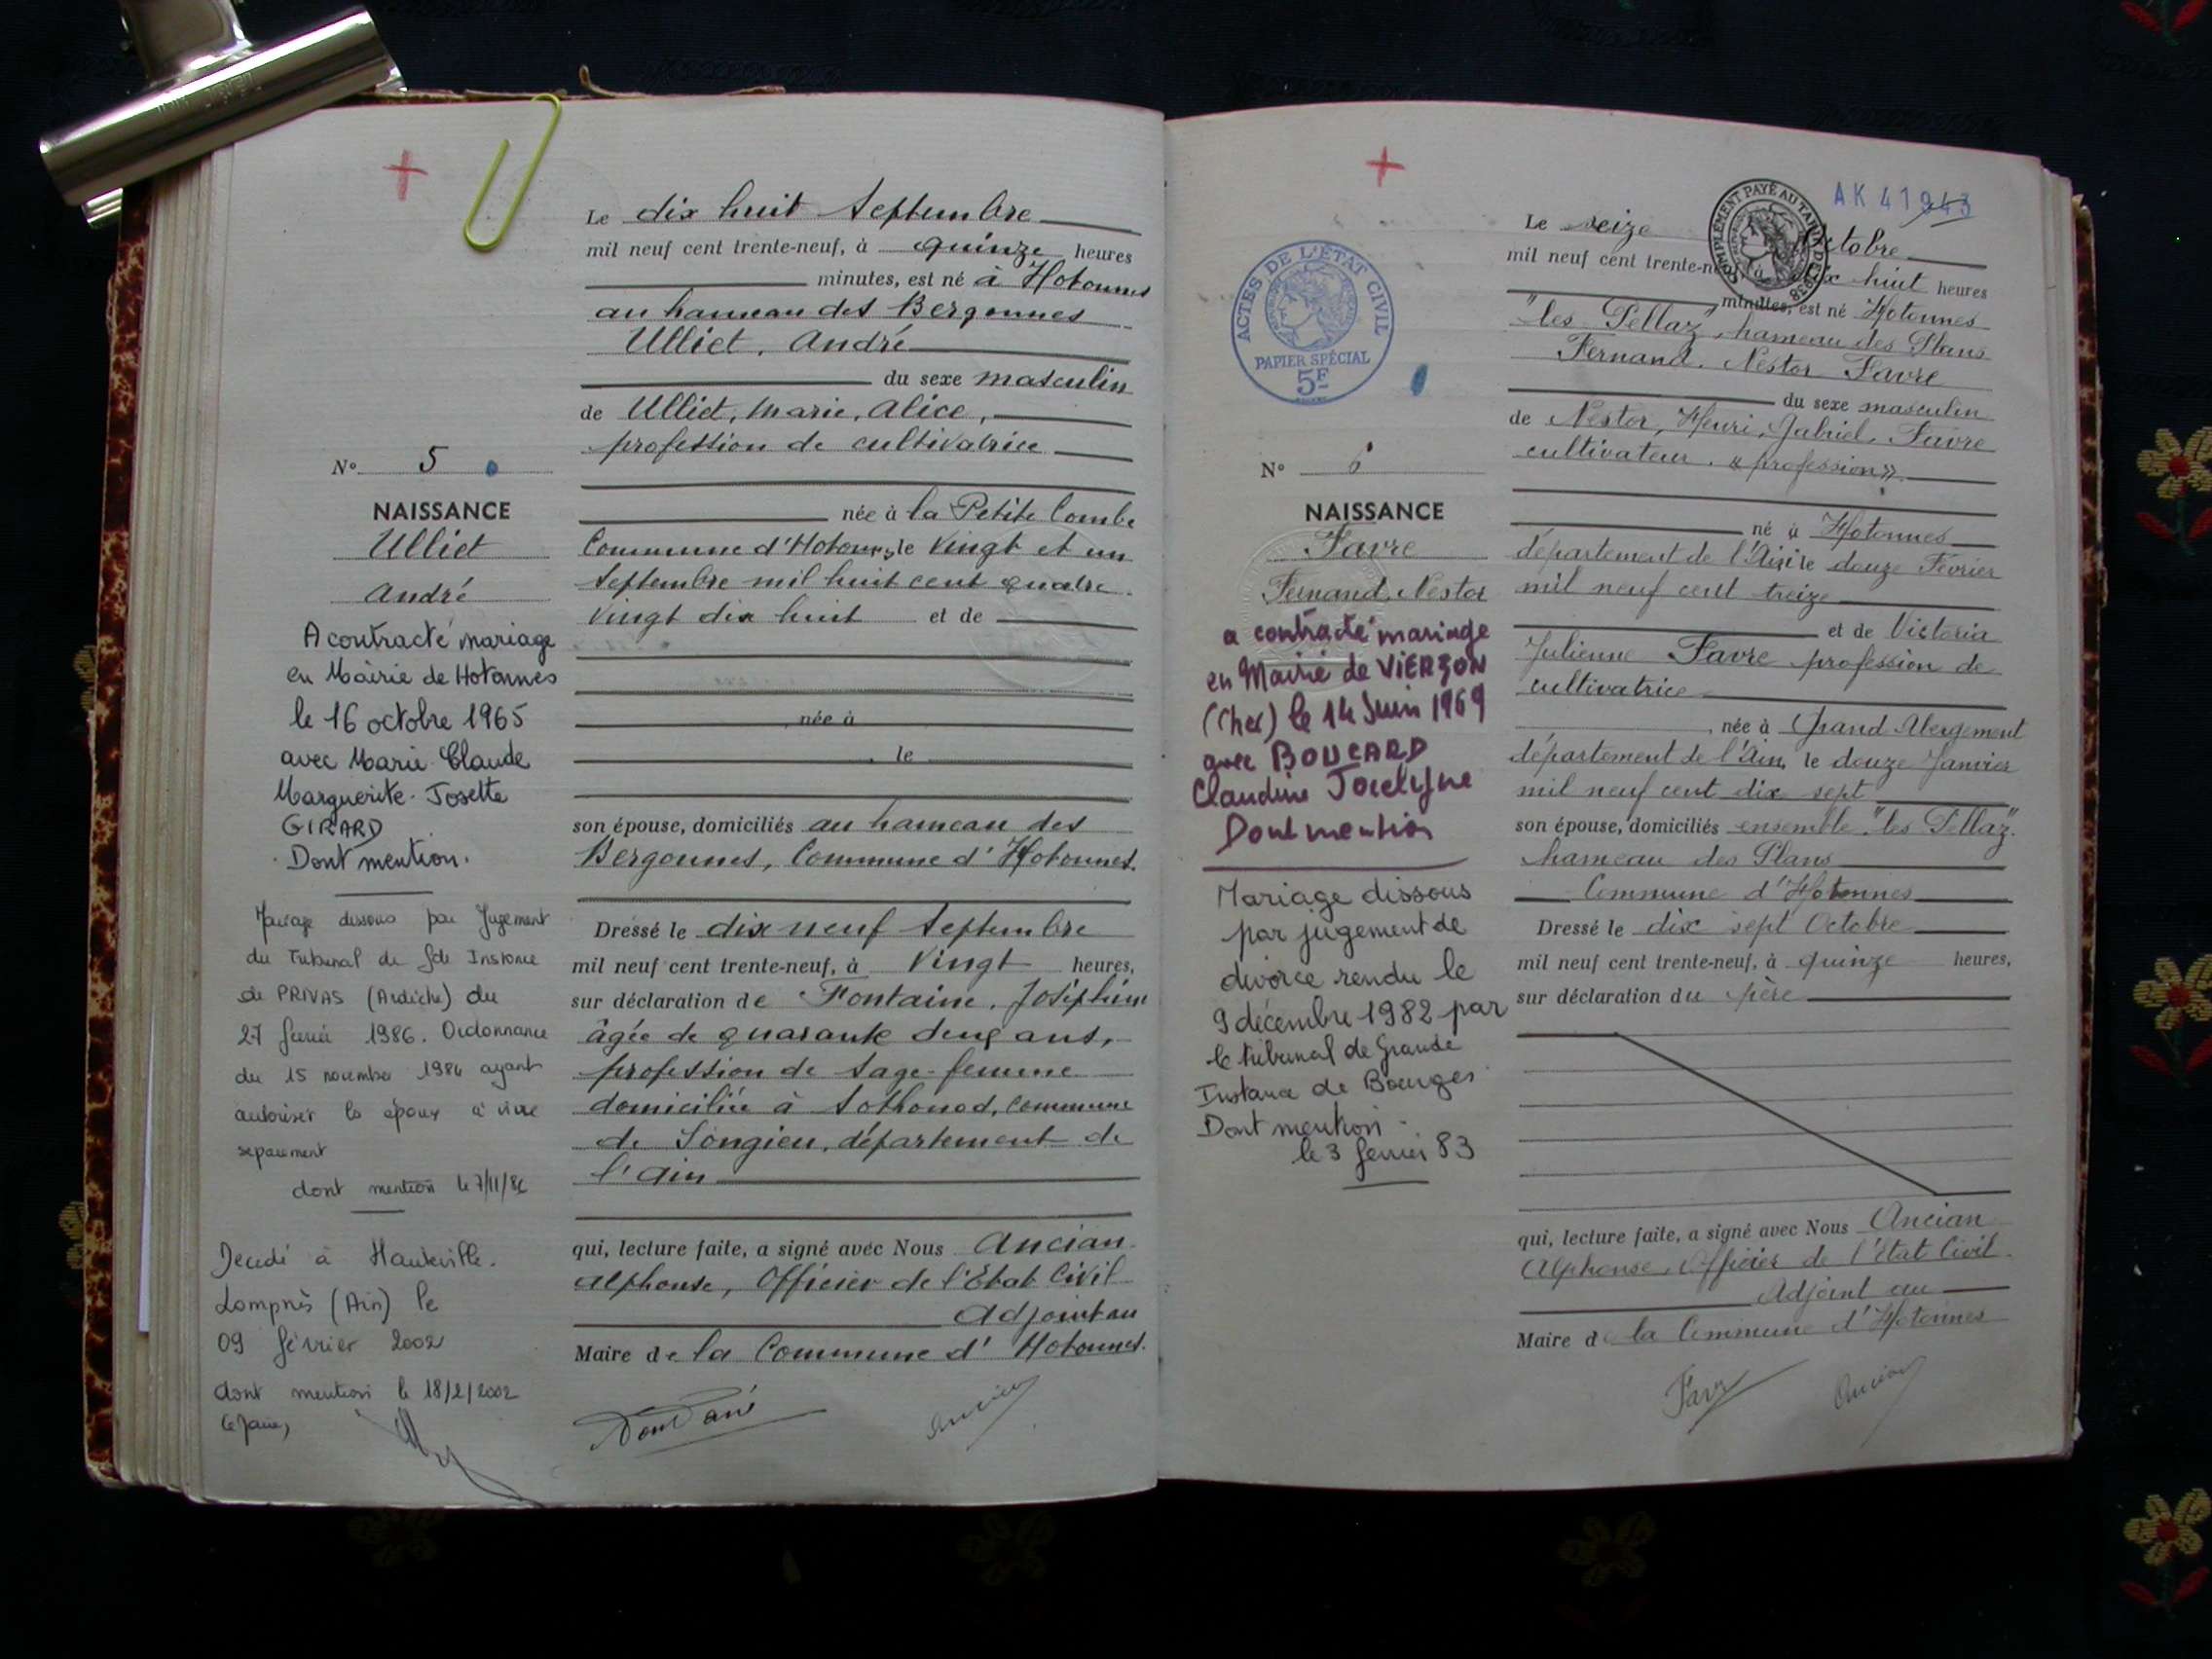 Le dix huit Septembre
mil neuf cent trente-neuf, à quinze heures
minutes, est né à Hotonnes
au hameau des Bergonnes
Ulliet, André
du sexe masculin
de Ulliet, Marie, Alice,
profession de cultivatrice
née à la Petite Combe
Commune d'Hotonnes, le Vingt et un
Septembre mil huit cent quatre
Vingt dix huit et de
née à
, le
son épouse, domiciliés au hameau des
Bergonnes, Commune d'Hotonnes.
Dressé le dix neuf Septembre
mil neuf cent trente-neuf, à Vingt heures,
sur déclaration de Fontaine, Joséphine
âgée de quarante deux ans,
profession de Sage-femme
domiciliée à Sothonod, Commune
de Songieu, département de
l'Ain
qui, lecture faite, a signé avec Nous Ancian
Alphonse, Officier de l'Etat Civil
Adjoint au
Maire de la Commune d'Hotonnes.
Ancian
N° 5
NAISSANCE
Ulliet
André
A contracté mariage
en Mairie de Hotonnes
le 16 octobre 1965
avec Marie-Claude
Marguerite-Josette
GIRARD
Dont mention.
Mariage dissous par Jugement
du Tribunal de Gde Instance
de PRIVAS (Ardèche) du
27 février 1986. Ordonnance
du 15 novembre 1984 ayant
autoriser les époux à vivre
separement
dont mention le 7/11/86
Decedé à Hauteville.
Lompnès (Ain) le
09 février 2002
dont mention le 18/2/2002
Le Maire,
AK 41943
COMPLÉMENT PAYÉ AU TARIF DE 1938
Le seize Octobre
mil neuf cent trente-neuf, à dix huit heures
minutes, est né Hotonnes
"les Pellaz", hameau des Plans
Fernand, Nestor Favre
du sexe masculin
de Nestor, Henri, Gabriel, Favre
cultivateur. «profession»
né à Hotonnes
département de l'Ain le douze Février
mil neuf cent treize
et de Victoria
Julienne Favre profession de
cultivatrice
, née à Grand Abergement
département de l'Ain, le douze Janvier
mil neuf cent dix sept
son épouse, domiciliés ensemble "les Pellaz".
hameau des Plans
Commune d'Hotonnes
Dressé le dix sept Octobre
mil neuf cent trente-neuf, à quinze heures,
sur déclaration du père
qui, lecture faite, a signé avec Nous Ancian
Alphonse, Officier de l'Etat Civil.
Adjoint au
Maire de la Commune d'Hotonnes
Favre Ancian
ACTES DE L'ÉTAT CIVIL
PAPIER SPÉCIAL
5F
N° 6
NAISSANCE
Favre
Fernand, Nestor
a contracté mariage
en Mairie de VIERZON
(Cher) le 14 Juin 1969
avec BOUCARD
Claudine Jocelyne
Dont mention
Mariage dissous
par jugement de
divorce rendu le
9 décembre 1982 par
le tribunal de Grande
Instance de Bourges
Dont mention
le 3 février 83